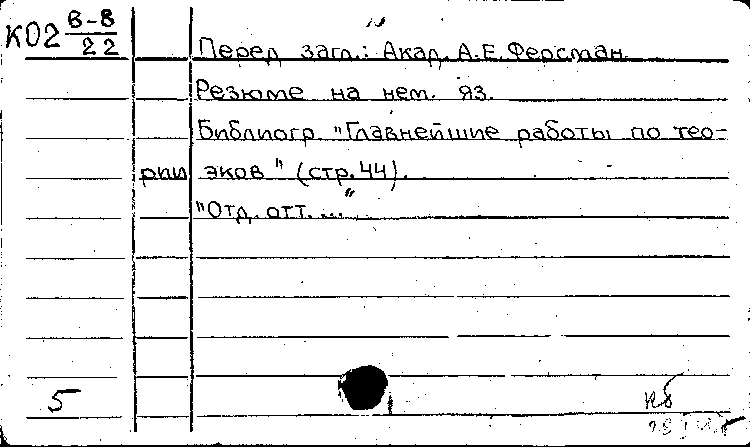 К02 6-8
22
Перед загл.: Акад. А.Е.Ферсман.
Резюме на нем. яз.
Библиогр. "Главнейшие работы по тео-
рии эков" (стр.44).
"Отд. отт. ..."
5
нб